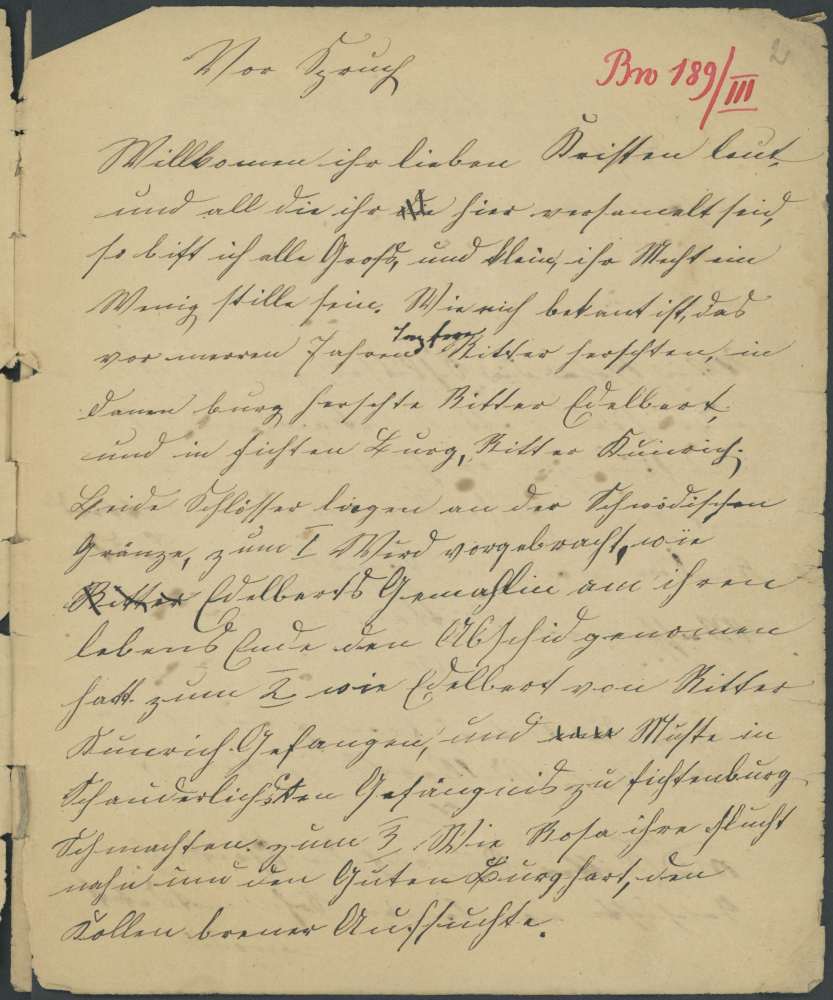 Vor Spruch
Bro 189/III
2
Willkomen ihr lieben Kristen leut,
und all die ihr hier versamelt seid,
so bitt ich alle Groß, und klein, ihr Mecht ein
Wenig stille sein. Wie eich bekant ist, das
vor merren Jahren Ritter herschten, in
danen burg herschte Ritter Edelbert,
und in fichten Burg, Ritter Kunrich.
Beide Schlösser liegen an der Schwädischen
Gränze, zum I Wird vorgebracht, wie
Ritter Edelberts Gemahlin am ihren
lebens Ende den Abschid genomen
hatt. zum 2 wie Edelbert von Ritter
Kunrich Gefangen, und Muste in
Schauderlichsten Gefängnis zu fichtenburg
Schmachten. zum 3 Wie Rosa ihre flucht
nahm und den Guten Burghart, den
Kollen brener Aufsuchte.